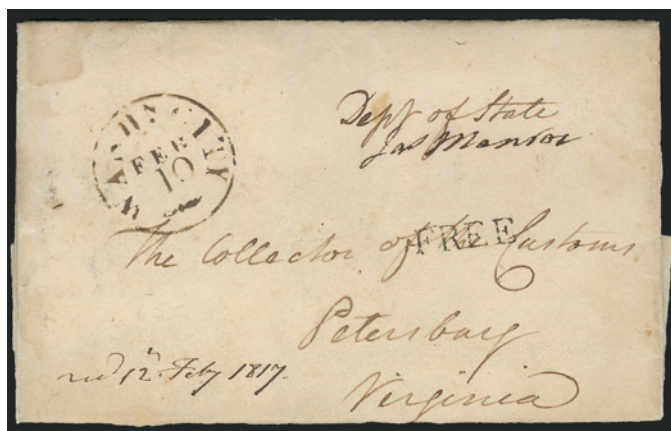 WASHN. CITY
FEB
10
Dept of State
Jas Monroe
FREE
The Collector of the Customs
Petersburg
recd 12h Feby 1817.
Virginia